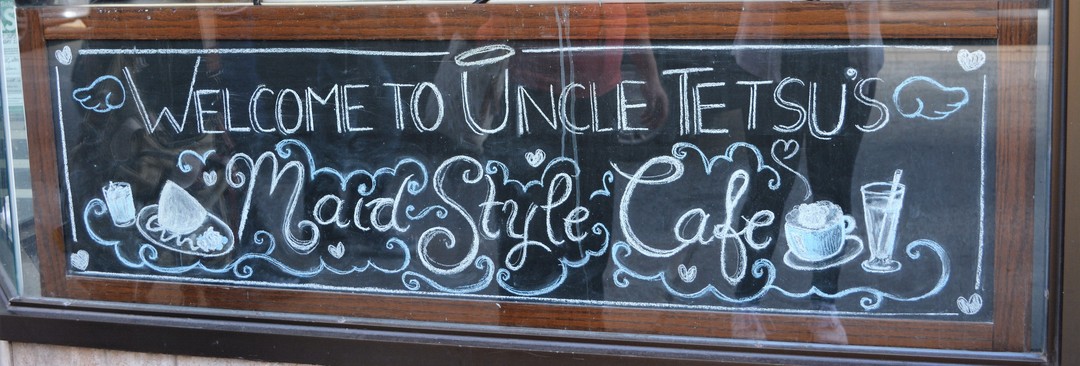 WELCOME TO UNCLE TETSU'S
Maid Style Cafe